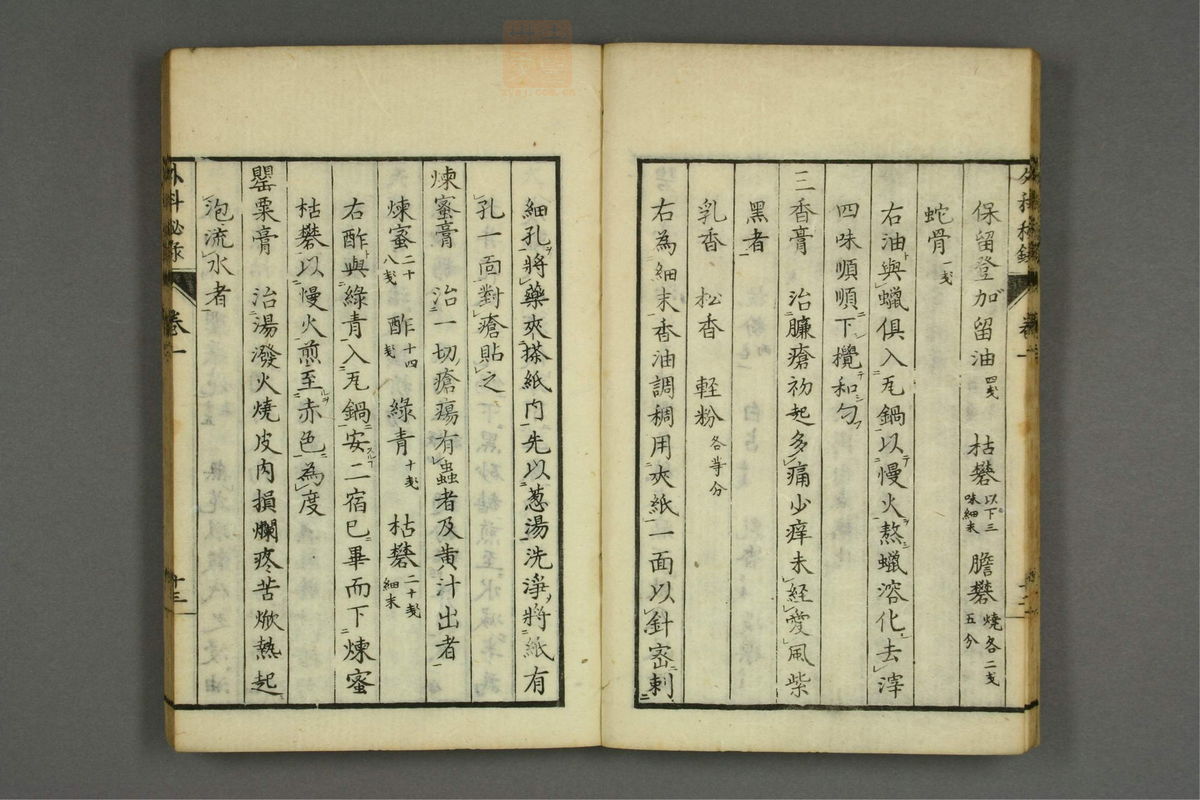 保留登加留油四戔 枯礬以下三味細末 膽礬燒各二戔五分
蛇骨一戔
右油與蠟俱入瓦鍋以慢火熬蠟溶化去滓
四味順順下攪和勻
三香膏 治臁瘡初起多痛少痒未經愛風紫
黑者
乳香 松香 輕粉各等分
右為細末香油調稠用夾紙一面以針密刺
細孔將藥夾搽紙內先以葱湯洗淨將紙有
孔一面對瘡貼之
煉蜜膏 治一切瘡瘍有蟲者及黃汁出者
煉蜜二十八戔 酢十四戔 綠青十戔 枯礬二十戔細末
右酢與綠青入瓦鍋安二宿已畢而下煉蜜
枯礬以慢火煎至赤色為度
罌粟膏 治湯潑火燒皮肉損爛疼苦焮熱起
泡流水者
外科秘录 卷一 十三